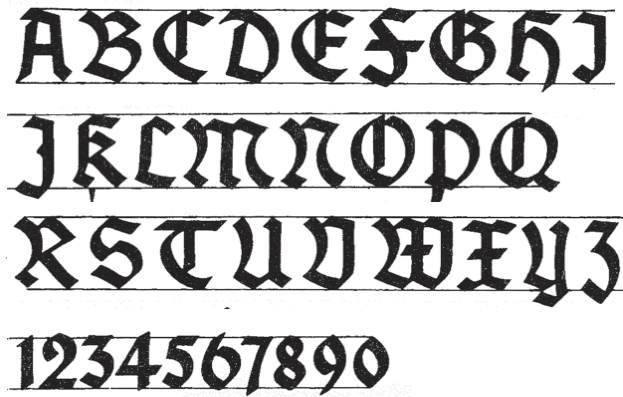 ABCDEFGHI
JKLMNOPQ
RSTUVWXYZ
1234567890